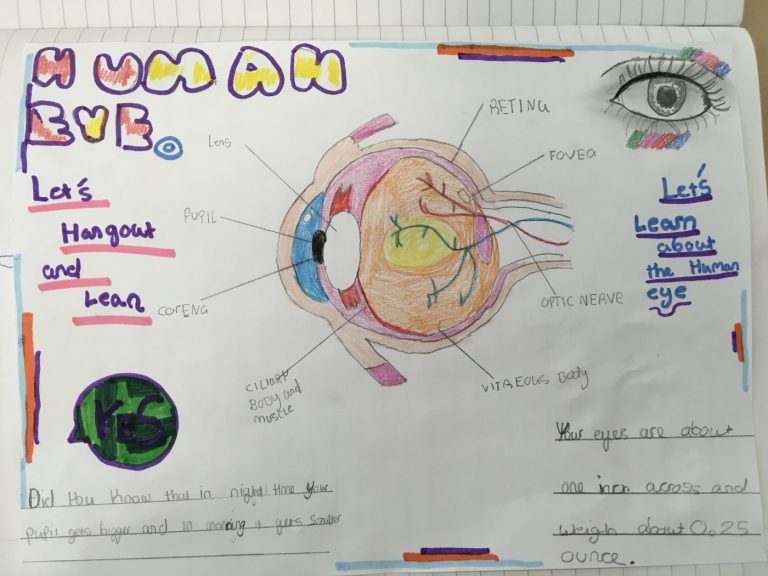 HUMAN
EYE.
Let's
Hangout
and
Lean
YES
Lens
PUPIL
CORENA
CILIARY
BODY and
muscle
RETINA
FOVEA
OPTIC NERVE
VITREOUS BODY
Let's
Learn
about
the Human
eye
Did You Know that in night time your
pupil gets bigger and in morning it gets smaller
Your eyes are about
one inch across and
weigh about 0.25
ounce.